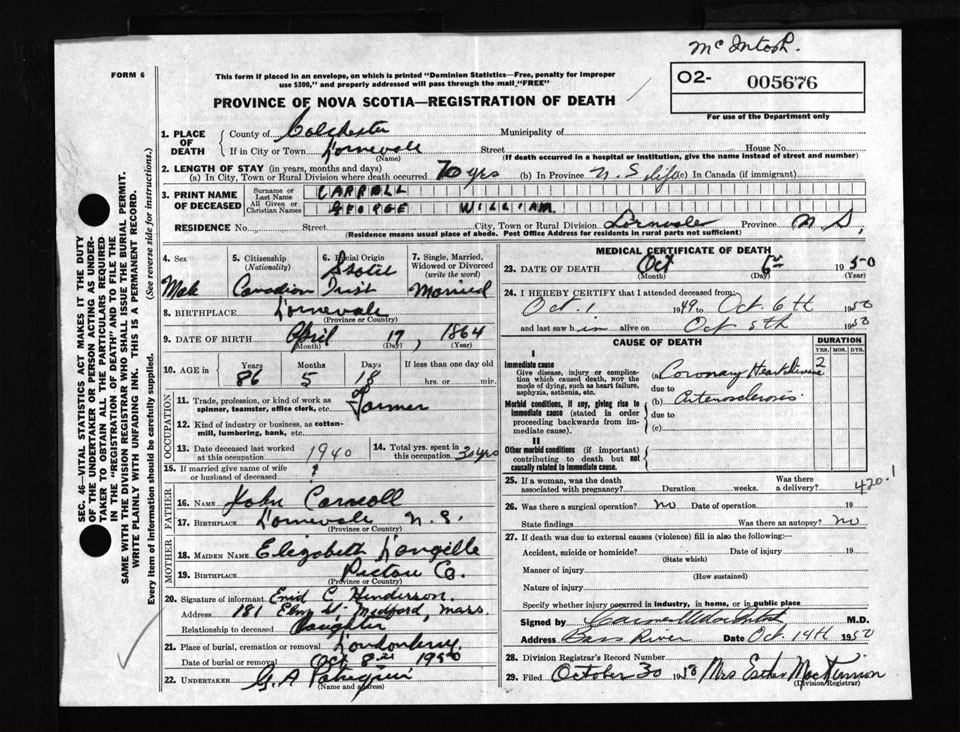 McIntosh.
FORM 6
This form if placed in an envelope, on which is printed "Dominion Statistics—Free, penalty for improper
use $300," and properly addressed will pass through the mail "FREE"
O2- 005676
For use of the Department only
PROVINCE OF NOVA SCOTIA—REGISTRATION OF DEATH
1. PLACE OF DEATH { County of Colchester Municipality of
If in City or Town Lornevale Street House No.
(Name) (If death occurred in a hospital or institution, give the name instead of street and number)
2. LENGTH OF STAY (in years, months and days)
(a) In City, Town or Rural Division where death occurred 70 yrs (b) In Province N. S life (c) In Canada (if immigrant)
3. PRINT NAME OF DECEASED { Surname or Last Name CARROLL
All Given or Christian Names GEORGE WILLIAM
RESIDENCE No. Street City, Town or Rural Division Lornvale Province N S,
(Residence means usual place of abode. Post Office Address for residents in rural parts not sufficient)
4. Sex Male
5. Citizenship (Nationality) Canadian
6. Racial Origin Irish
7. Single, Married, Widowed or Divorced (write the word) Married
8. BIRTHPLACE Lornevale
(Province or Country)
9. DATE OF BIRTH April 17, 1864
(Month) (Day) (Year)
10. AGE in { Years 86 Months 5 Days 18 If less than one day old
hrs. or min.
OCCUPATION
11. Trade, profession, or kind of work as
spinner, teamster, office clerk, etc. Farmer
12. Kind of industry or business, as cotton-
mill, lumbering, bank, etc.
13. Date deceased last worked at this occupation 1940
14. Total yrs. spent in this occupation 30 yrs
15. If married give name of wife
or husband of deceased ?
FATHER
16. NAME John Carroll
17. BIRTHPLACE Lornevale N. S.
(Province or Country)
MOTHER
18. MAIDEN NAME Elizabeth Langille
19. BIRTHPLACE Pictou Co.
(Province or Country)
20. Signature of informant Enid C Henderson.
Address 181 St. Medford, Mass.
Relationship to deceased Daughter
21. Place of burial, cremation or removal Londonderry
Date of burial or removal Oct 8 1950
22. UNDERTAKER G. A
(Name and address)
MEDICAL CERTIFICATE OF DEATH
23. DATE OF DEATH Oct 6 1950
(Month) (Day) (Year)
24. I HEREBY CERTIFY that I attended deceased from:
Oct. 1 1949 to Oct 6th 1950
and last saw him alive on Oct 5th 1950
CAUSE OF DEATH
DURATION
YRS. MOS. DYS.
I
Immediate cause
Give disease, injury or complica-
tion which caused death, NOT the
mode of dying, such as heart failure,
asphyxia, asthenia, etc.
(a) Coronary Heart disease 2
due to
Morbid conditions, if any, giving rise to
immediate cause (stated in order
proceeding backwards from im-
mediate cause).
(b) Arteriosclerosis
due to
(c)
II
Other morbid conditions (if important)
contributing to death but not
causally related to immediate cause.
25. If a woman, was the death
associated with pregnancy? Duration weeks. Was there a delivery?
420.1
26. Was there a surgical operation? No Date of operation 19
State findings Was there an autopsy? No
27. If death was due to external causes (violence) fill in also the following:—
Accident, suicide or homicide? Date of injury 19
(State which)
Manner of injury
(How sustained)
Nature of injury
Specify whether injury occurred in industry, in home, or in public place
Signed by M.D.
Address Bass River Date Oct 14th 1950
28. Division Registrar's Record Number
29. Filed October 30 1950 Mrs Esther MacKinnon
(Division Registrar)
SEC. 46—VITAL STATISTICS ACT MAKES IT THE DUTY
OF THE UNDERTAKER OR PERSON ACTING AS UNDER-
TAKER TO OBTAIN ALL THE PARTICULARS REQUIRED
IN THE "REGISTRATION OF DEATH" AND TO FILE THE
SAME WITH THE DIVISION REGISTRAR WHO SHALL ISSUE THE BURIAL PERMIT.
WRITE PLAINLY WITH UNFADING INK. THIS IS A PERMANENT RECORD.
Every item of information should be carefully supplied. (See reverse side for instructions.)